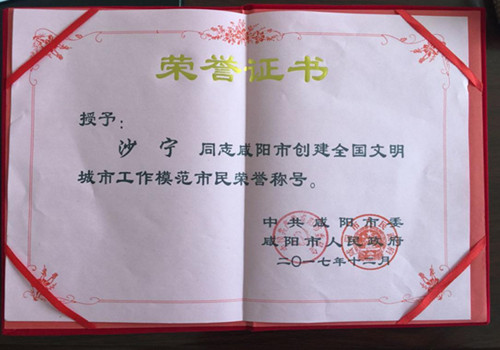 荣誉证书
授予：
沙宁 同志咸阳市创建全国文明
城市工作模范市民荣誉称号。
中共咸阳市委
咸阳市人民政府
二〇一七年十二月